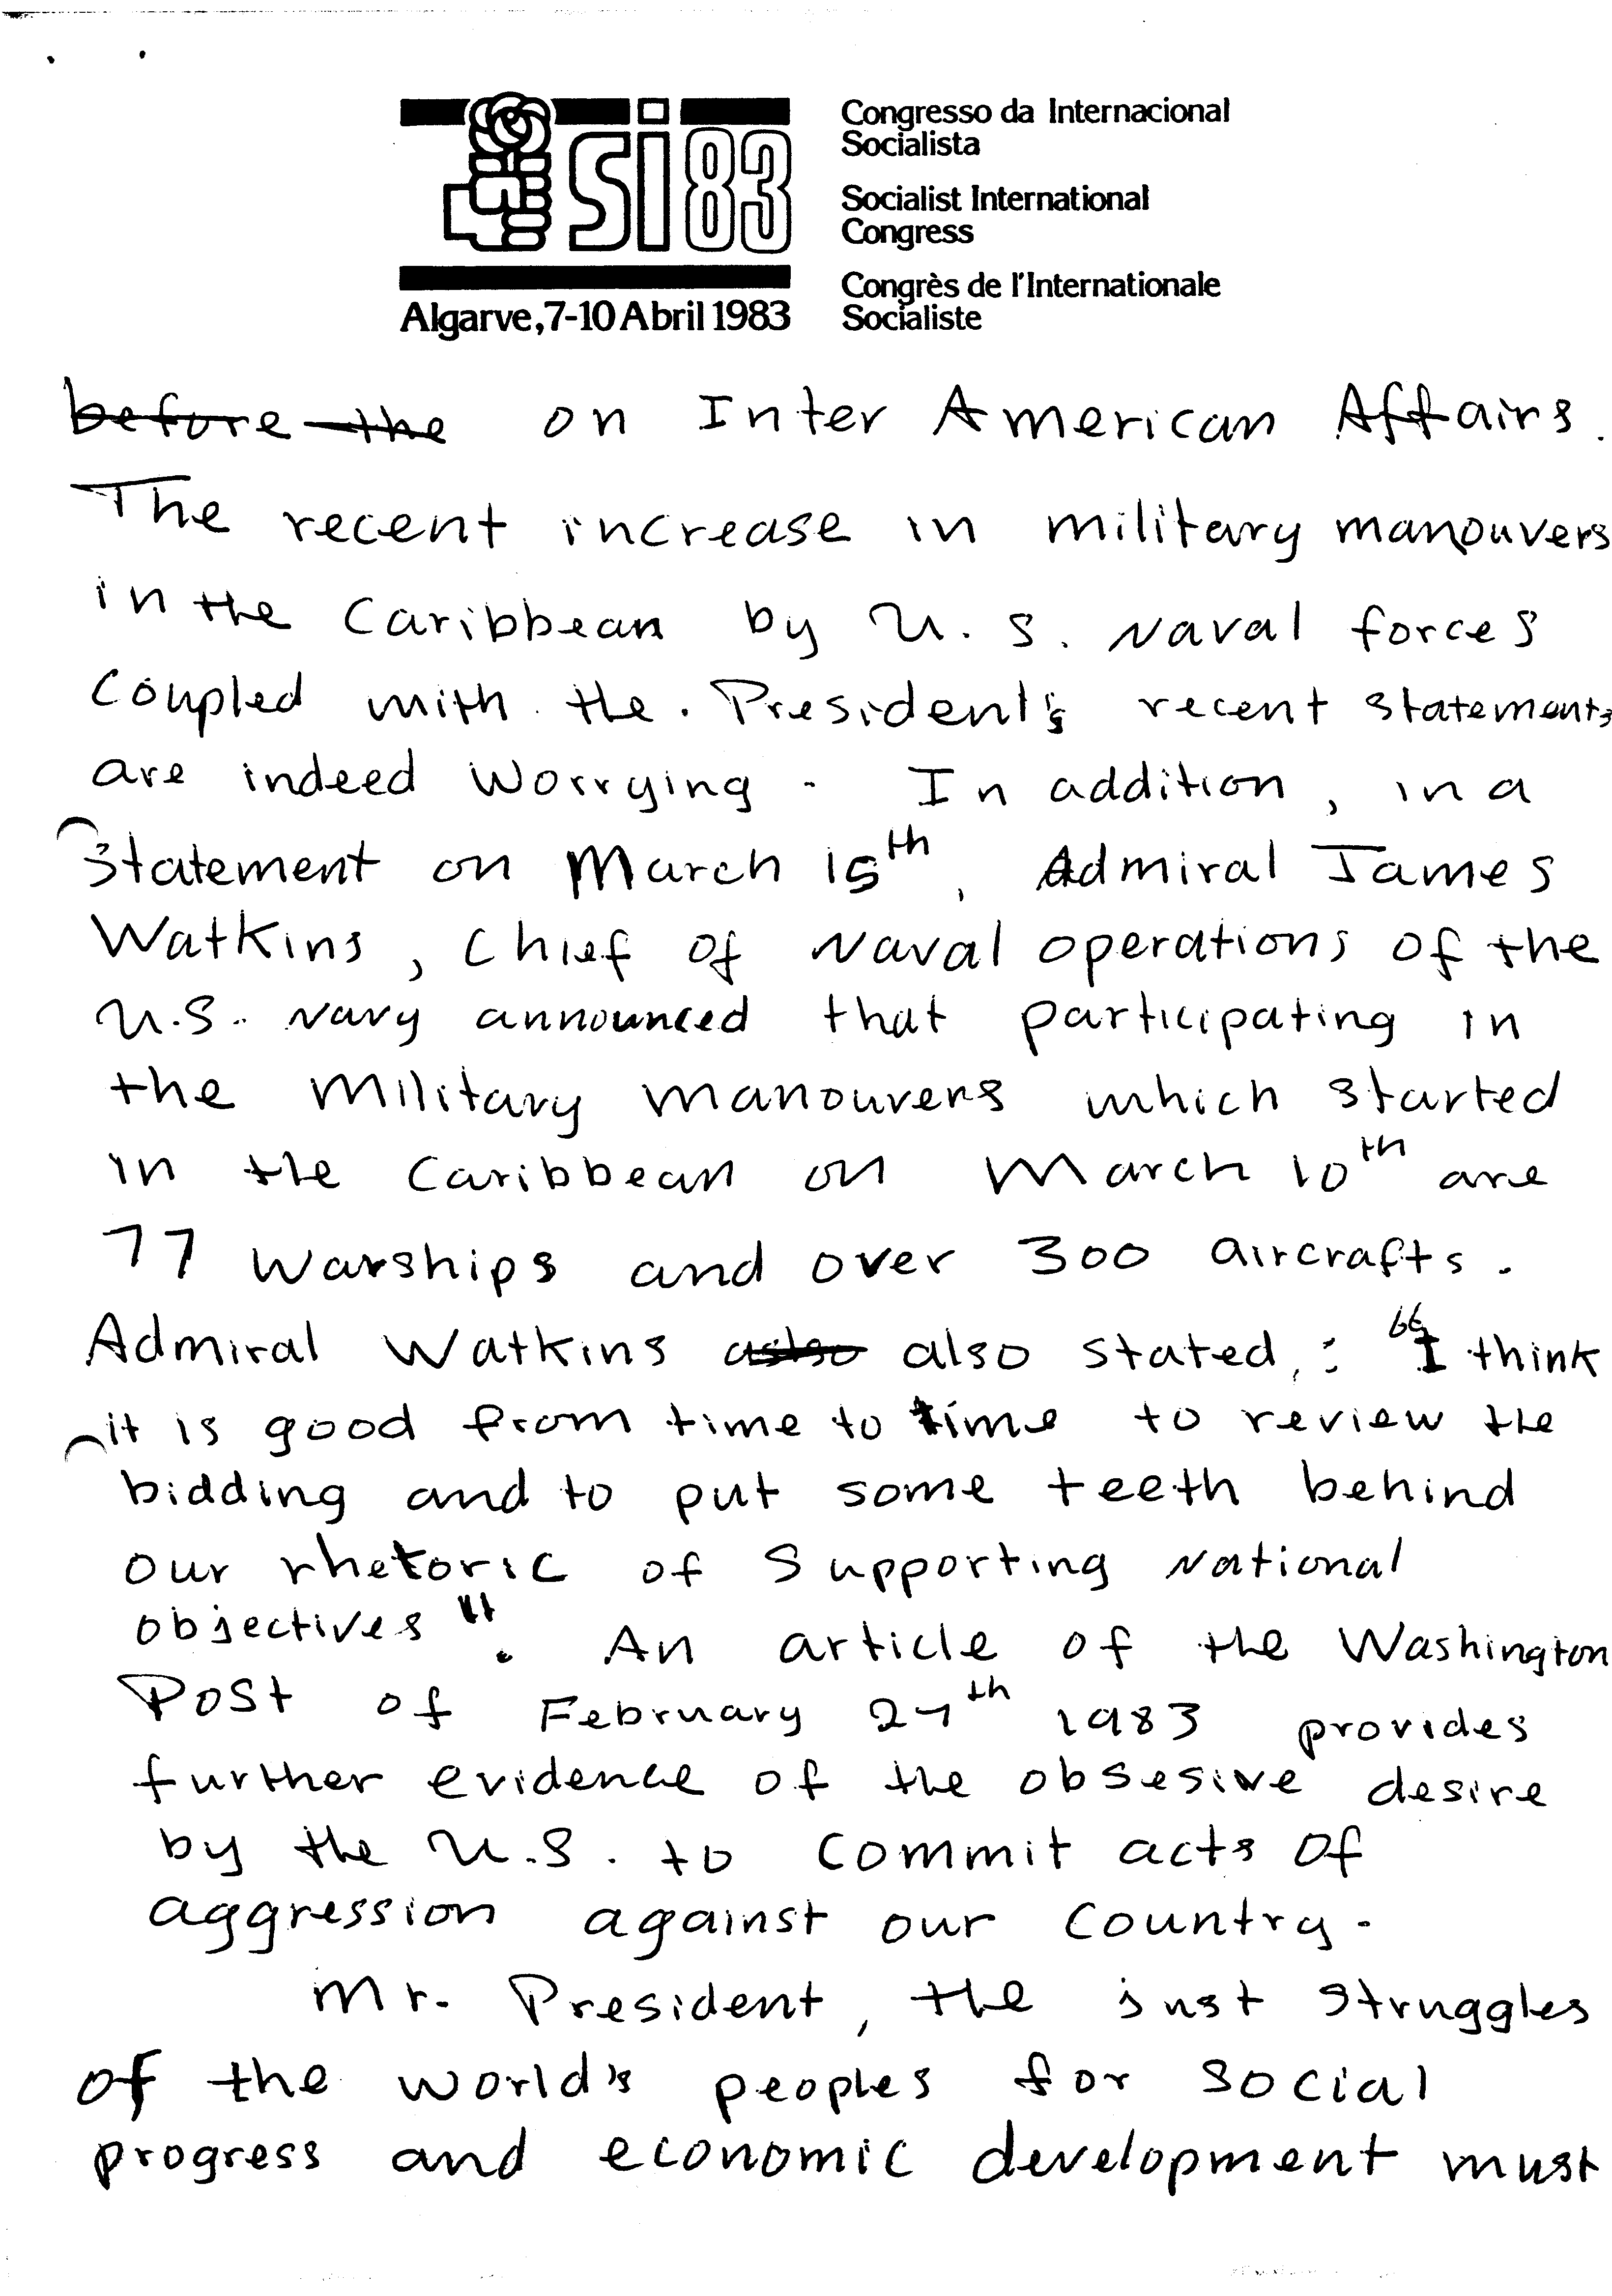 si 83
Algarve, 7-10 Abril 1983
Congresso da Internacional
Socialista
Socialist International
Congress
Congrès de l'Internationale
Socialiste
before the on Inter American Affairs.
The recent increase in military manouvers
in the Caribbean by U.S. Naval forces
coupled with the President's recent statements
are indeed worrying. In addition, in a
statement on March 15th, Admiral James
Watkins, Chief of Naval operations of the
U.S. Navy announced that participating in
the military manouvers which started
in the Caribbean on March 10th are
77 warships and over 300 aircrafts.
Admiral Watkins also also stated, : "I think
it is good from time to time to review the
bidding and to put some teeth behind
our rhetoric of supporting National
objectives". An article of the Washington
Post of February 27th 1983 provides
further evidence of the obsesive desire
by the U.S. to commit acts of
aggression against our country.
Mr. President, the just struggles
of the world's peoples for social
progress and economic development must